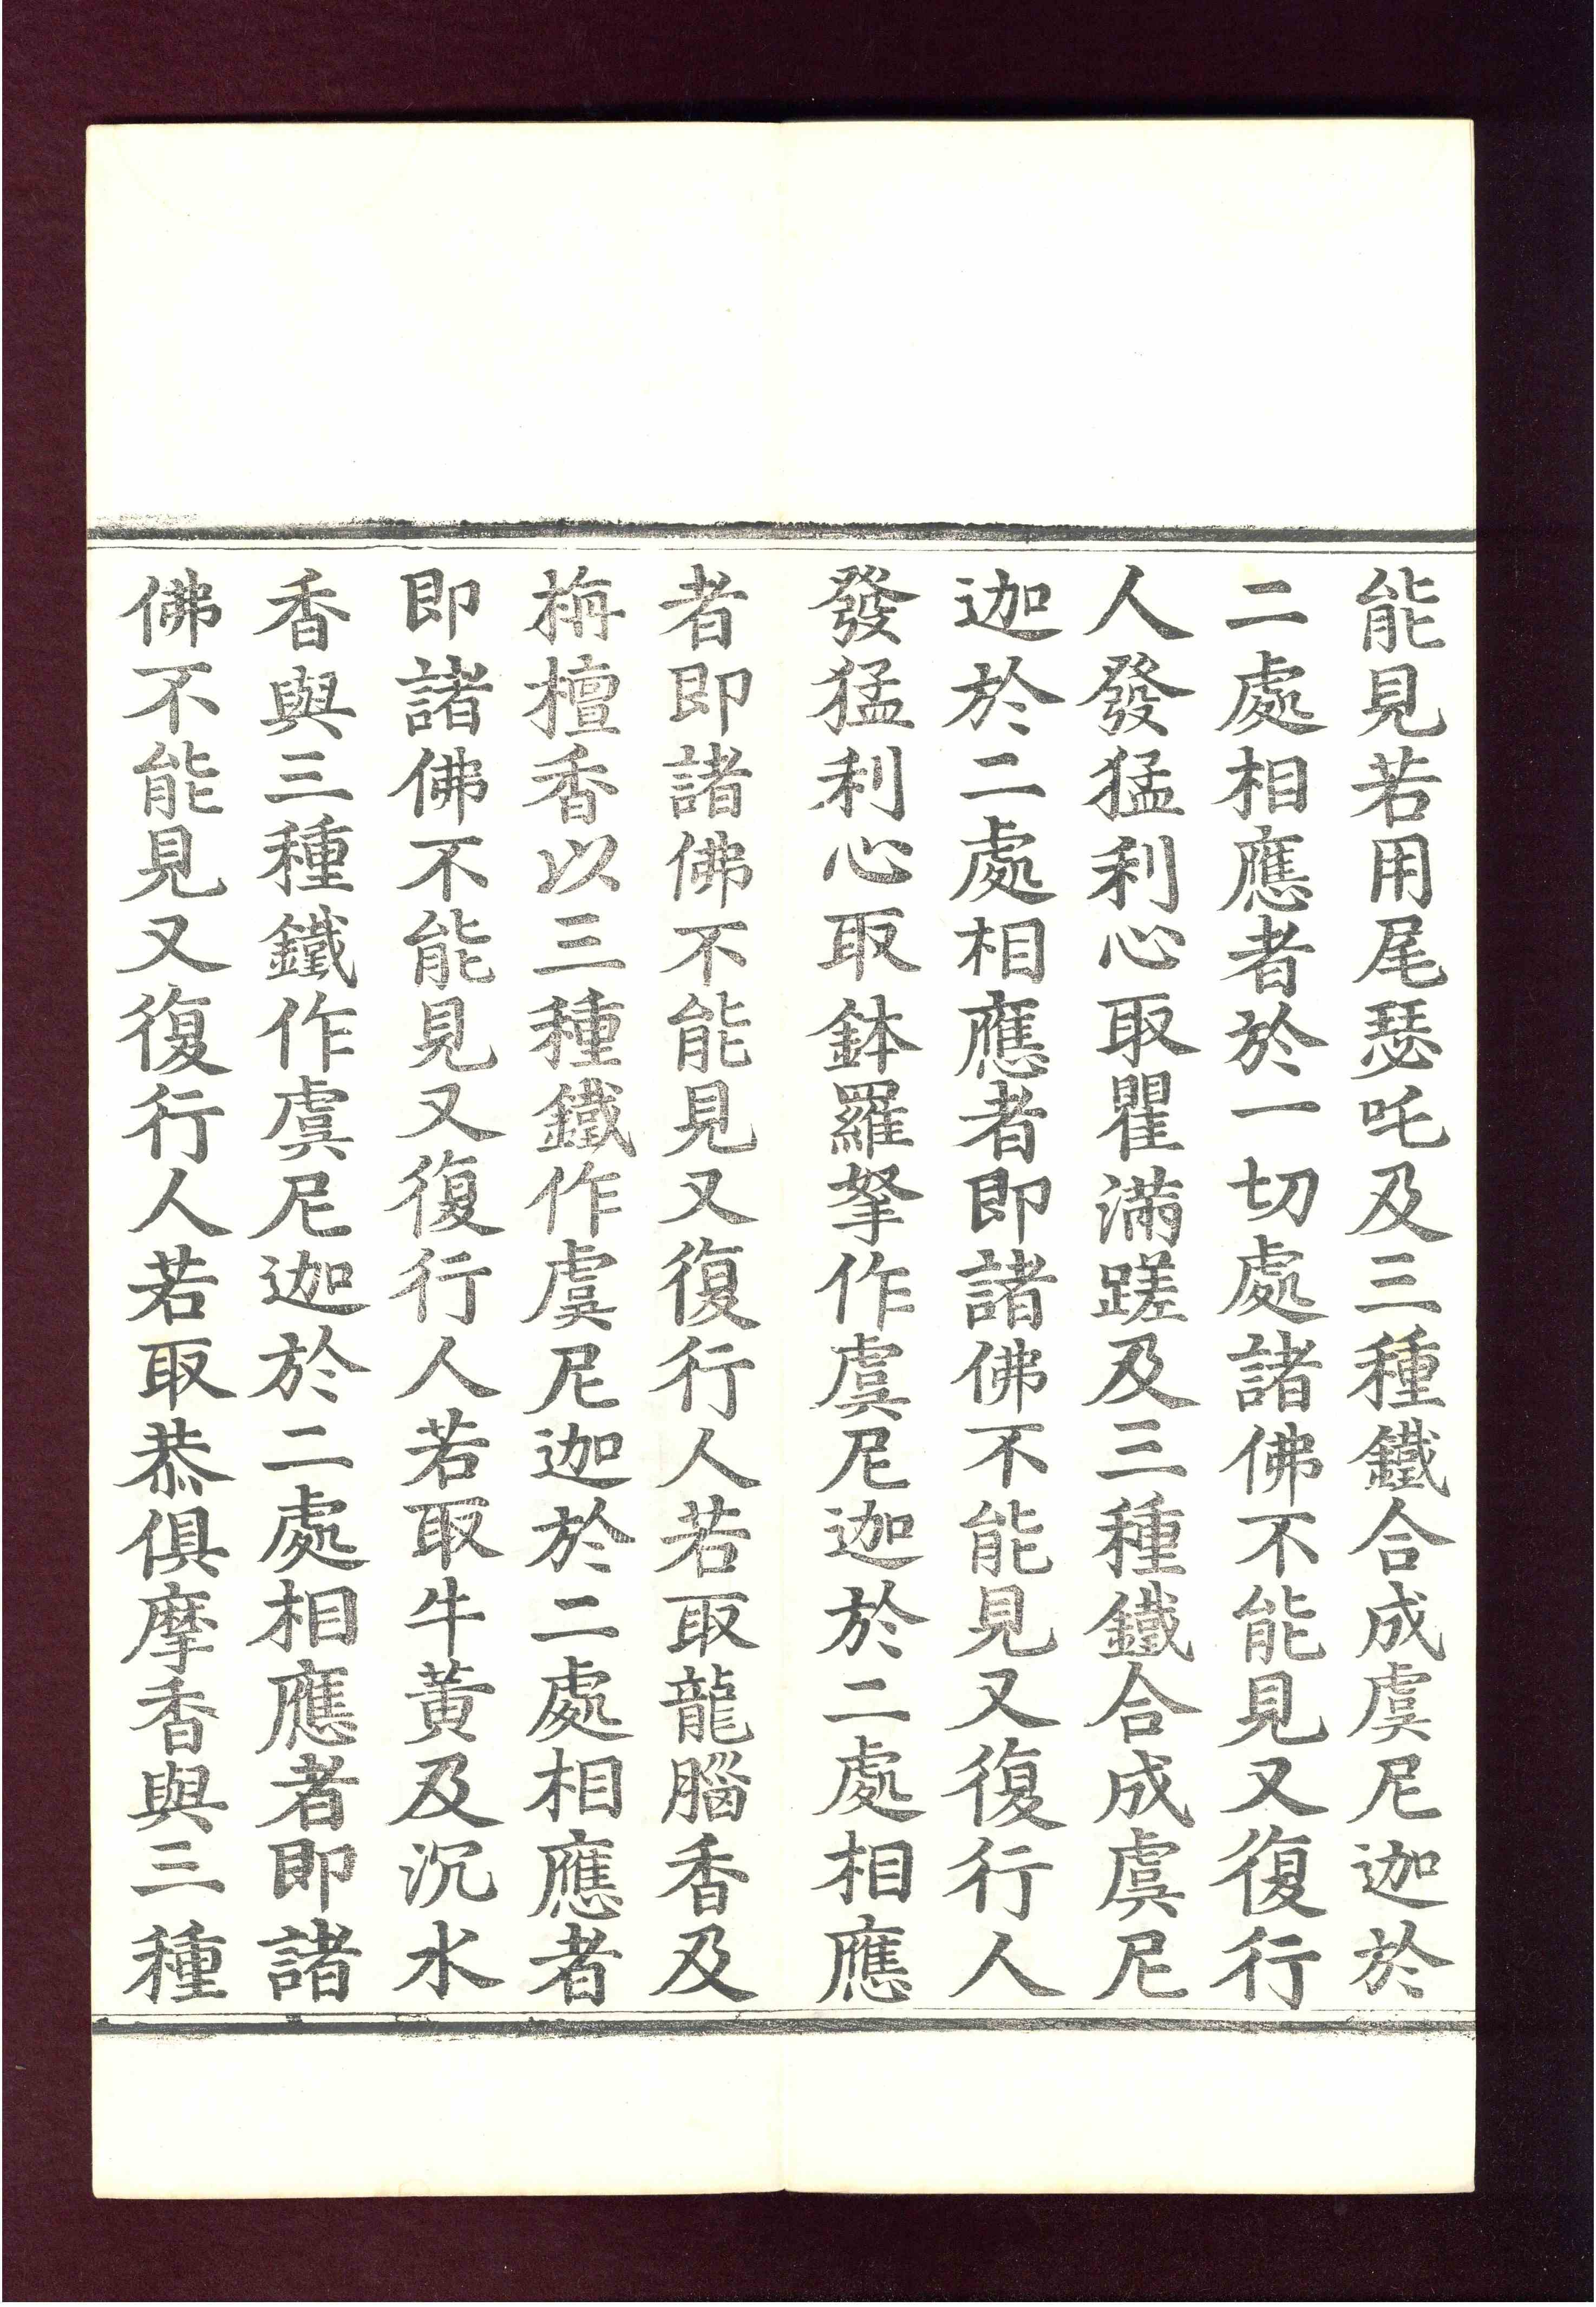 能見若用尾瑟吒及三種鐵合成虞尼迦於
二處相應者於一切處諸佛不能見又復行
人發猛利心取瞿滿蹉及三種鐵合成虞尼
迦於二處相應者即諸佛不能見又復行人
發猛利心取鉢羅拏作虞尼迦於二處相應
者即諸佛不能見又復行人若取龍腦香及
栴檀香以三種鐵作虞尼迦於二處相應者
即諸佛不能見又復行人若取牛黃及沉水
香與三種鐵作虞尼迦於二處相應者即諸
佛不能見又復行人若取恭俱摩香與三種